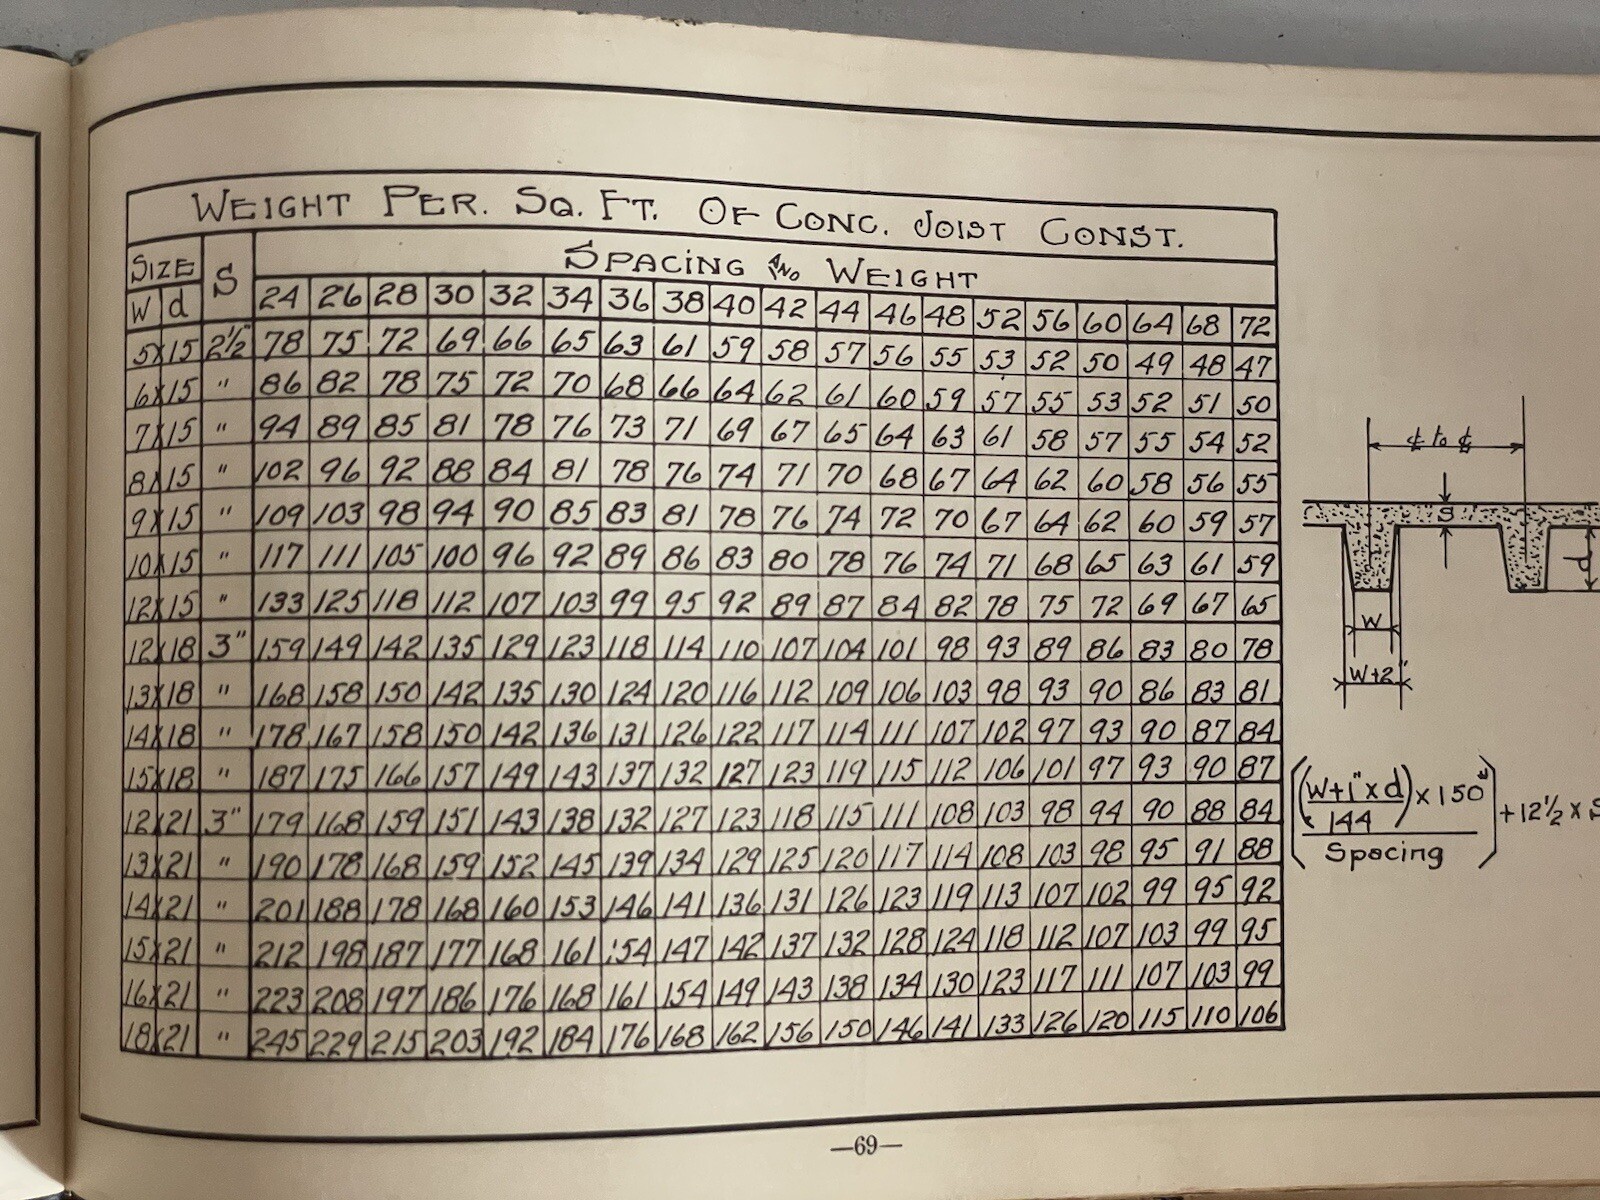 WEIGHT PER. SQ. FT. OF CONC. JOIST CONST.
SIZE S SPACING AND WEIGHT
W d 24 26 28 30 32 34 36 38 40 42 44 46 48 52 56 60 64 68 72
5X15 2½" 78 75 72 69 66 65 63 61 59 58 57 56 55 53 52 50 49 48 47
6X15 " 86 82 78 75 72 70 68 66 64 62 61 60 59 57 55 53 52 51 50
7X15 " 94 89 85 81 78 76 73 71 69 67 65 64 63 61 58 57 55 54 52
8X15 " 102 96 92 88 84 81 78 76 74 71 70 68 67 64 62 60 58 56 55
9X15 " 109 103 98 94 90 85 83 81 78 76 74 72 70 67 64 62 60 59 57
10X15 " 117 111 105 100 96 92 89 86 83 80 78 76 74 71 68 65 63 61 59
12X15 " 133 125 118 112 107 103 99 95 92 89 87 84 82 78 75 72 69 67 65
12X18 3" 159 149 142 135 129 123 118 114 110 107 104 101 98 93 89 86 83 80 78
13X18 " 168 158 150 142 135 130 124 120 116 112 109 106 103 98 93 90 86 83 81
14X18 " 178 167 158 150 142 136 131 126 122 117 114 111 107 102 97 93 90 87 84
15X18 " 187 175 166 157 149 143 137 132 127 123 119 115 112 106 101 97 93 90 87
12X21 3" 179 168 159 151 143 138 132 127 123 118 115 111 108 103 98 94 90 88 84
13X21 " 190 178 168 159 152 145 139 134 129 125 120 117 114 108 103 98 95 91 88
14X21 " 201 188 178 168 160 153 146 141 136 131 126 123 119 113 107 102 99 95 92
15X21 " 212 198 187 177 168 161 154 147 142 137 132 128 124 118 112 107 103 99 95
16X21 " 223 208 197 186 176 168 161 154 149 143 138 134 130 123 117 111 107 103 99
18X21 " 245 229 215 203 192 184 176 168 162 156 150 146 141 133 126 120 115 110 106
℄ to ℄
S
d
W
W+2"
((W+1"xd)/144) x 150# + 12½ x S
Spacing
—69—